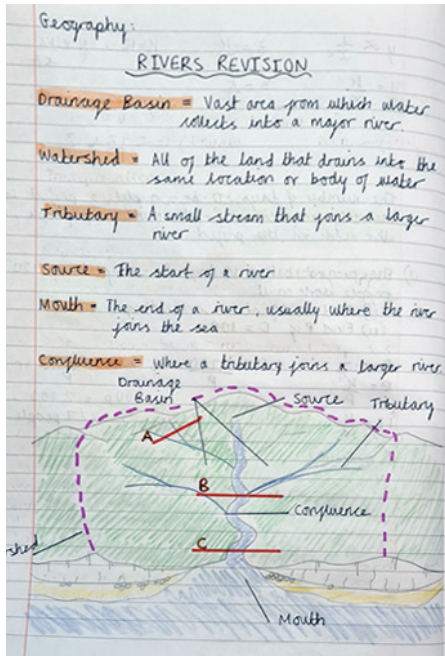 Geography:
RIVERS REVISION
Drainage Basin = Vast area from which water
collects into a major river.
Watershed = All of the land that drains into the
same location or body of water
Tributary = A small stream that joins a larger
river
Source = The start of a river
Mouth = The end of a river, usually where the river
joins the sea
Confluence = Where a tributary joins a larger river.
Drainage
Basin
Source
Tributary
A
B
Confluence
C
shed
Mouth